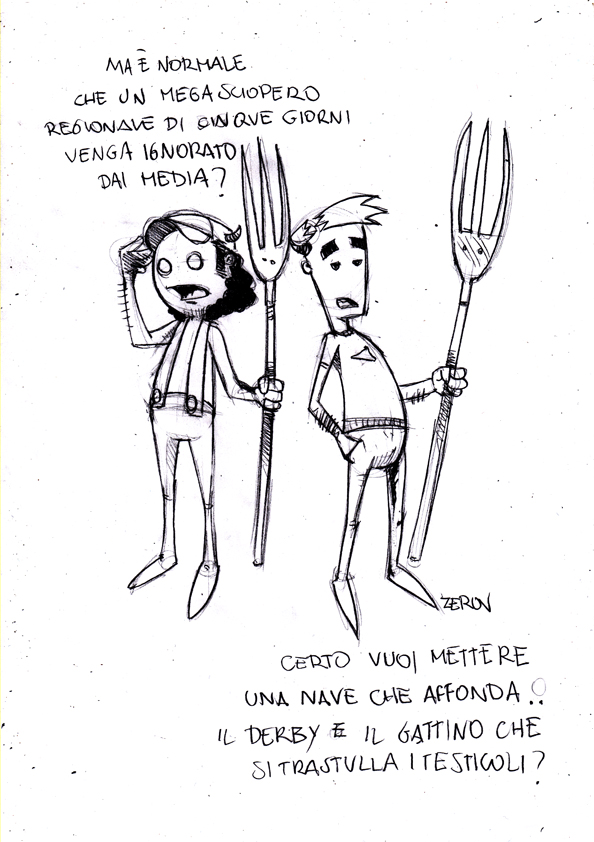 MA È NORMALE
CHE UN MEGASCIOPERO
REGIONALE DI CINQUE GIORNI
VENGA IGNORATO
DAI MEDIA?
ZEROV
CERTO VUOI METTERE
UNA NAVE CHE AFFONDA..
IL DERBY E IL GATTINO CHE
SI TRASTULLA I TESTICOLI?